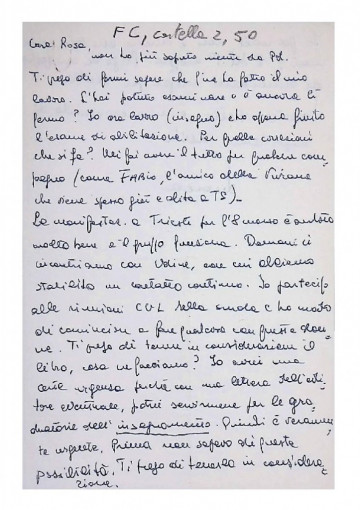 FC, cartella 2, 50
Cara Rosa,
non ho più saputo niente da Pd.
Ti prego di farmi sapere che fine ha fatto il mio
lavoro. L'hai potuto esaminare o è ancora lì
fermo? Io ora lavoro (insegno) e ho appena finito
l'esame di abilitazione. Per quelle correzioni
che si fa? Mi fai avere il tutto per qualche com-
pagno (come FABIO, l'amico della Viviana
che viene spesso giù e abita a TS)_
La manifestaz. a Trieste per l'8 marzo è andata
molto bene e il gruppo funziona. Domani ci
incontriamo con Udine, con cui abbiamo
stabilito un contatto continuo. Io partecipo
alle riunioni CGIL della scuola e ho modo
di cominciare a fare qualcosa con queste don-
ne. Ti prego di tener in considerazione il
libro, cosa ne facciamo? Io avrei una
certa urgenza perché con una lettera dell'edi-
tore eventuale, potrei servirmene per le gra-
duatorie dell'insegnamento. Quindi è veramen-
te urgente. Prima non sapevo di questa
possibilità. Ti prego di tenerla in considera-
zione.